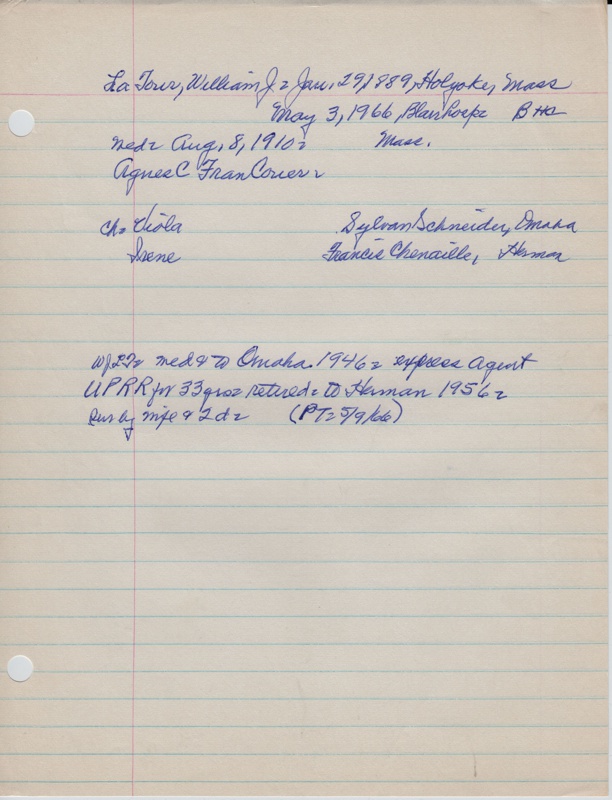 La Tour, William J= Jan. 29, 1889, Holyoke, Mass
May 3, 1966, Blair hosp= BHS
med= Aug. 8, 1910= Mass.
Agnes C FranCouer=
ch= Viola Sylvan Schneider, Omaha
Irene Francis Chenaille, Herman
WJLT= med & to Omaha 1946= express agent
UPRR for 33 yrs= retired= to Herman 1956=
Sur by wife & 2 d= (PT=5/9/66)